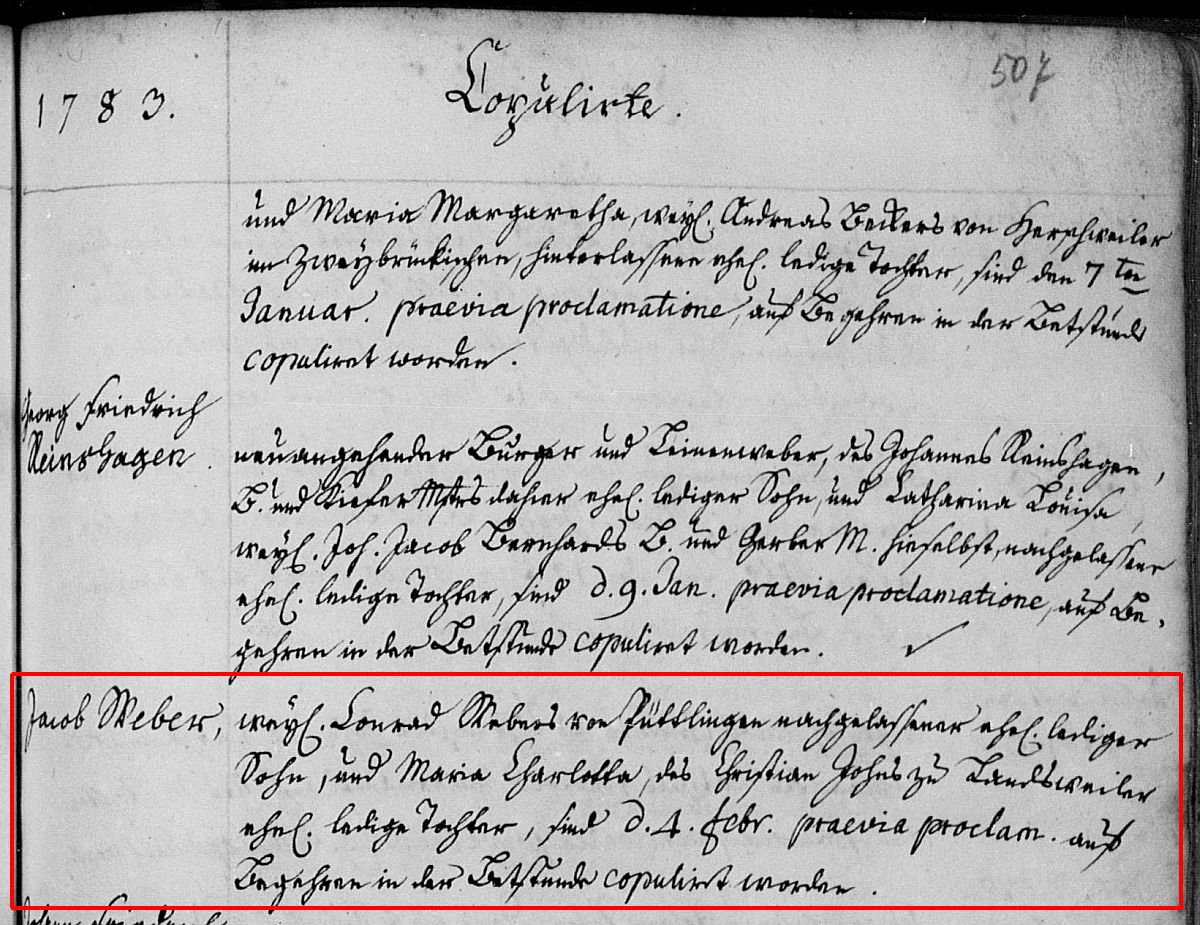 507
1783. Copulirte.
und Maria Margaretha, weyl. Andreas Beckers von Herschweiler
im Zweybrückischen, hinterlassene ehel. ledige Tochter, sind den 7ten
Januar. praevia proclamatione, auf Begehren in der Betstunde
copuliret worden.
Georg Friedrich
Reinshagen.
neuangehender Burger und Leinenweber, des Johannes Reinshagen,
B. und Kiefer Mstrs dahier ehel. lediger Sohn, und Catharina Louisa,
weyl. Joh. Jacob Bernhards B. und Gerber M. hieselbst, nachgelassene
ehel. ledige Tochter, sind d. 9. Jan. praevia proclamatione, auf Be-
gehren in der Betstunde copuliret worden.
Jacob Weber, weyl. Conrad Webers von Püttlingen nachgelassener ehel. lediger
Sohn, und Maria Charlotta, des Christian Johns zu Landsweiler
ehel. ledige Tochter, sind d. 4. Febr. praevia proclam. auf
Begehren in der Betstunde copuliret worden.